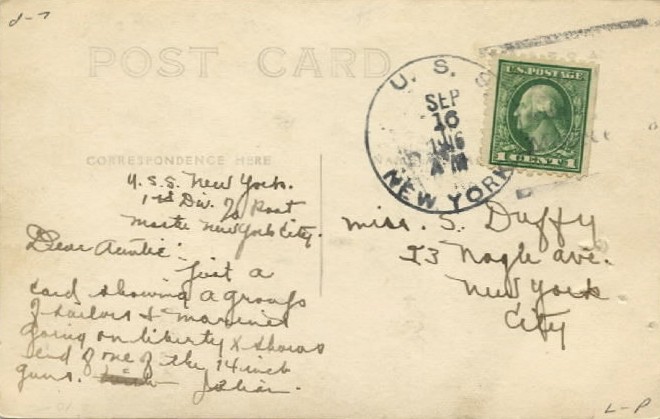 d-7
POST CARD
U. S. S.
SEP
16
1916
A M
NEW YORK
U.S. POSTAGE
1 CENT 1
CORRESPONDENCE HERE
U.S.S. New York.
1st Div. % Post
Master New York City.
Dear Auntie:
Just a
card showing a groups
of sailors & marines
going on liberty & shows
end of one of the 14 inch
guns. Julian.
Miss. S. Duffy
Nagle ave.
New York
City
L-P